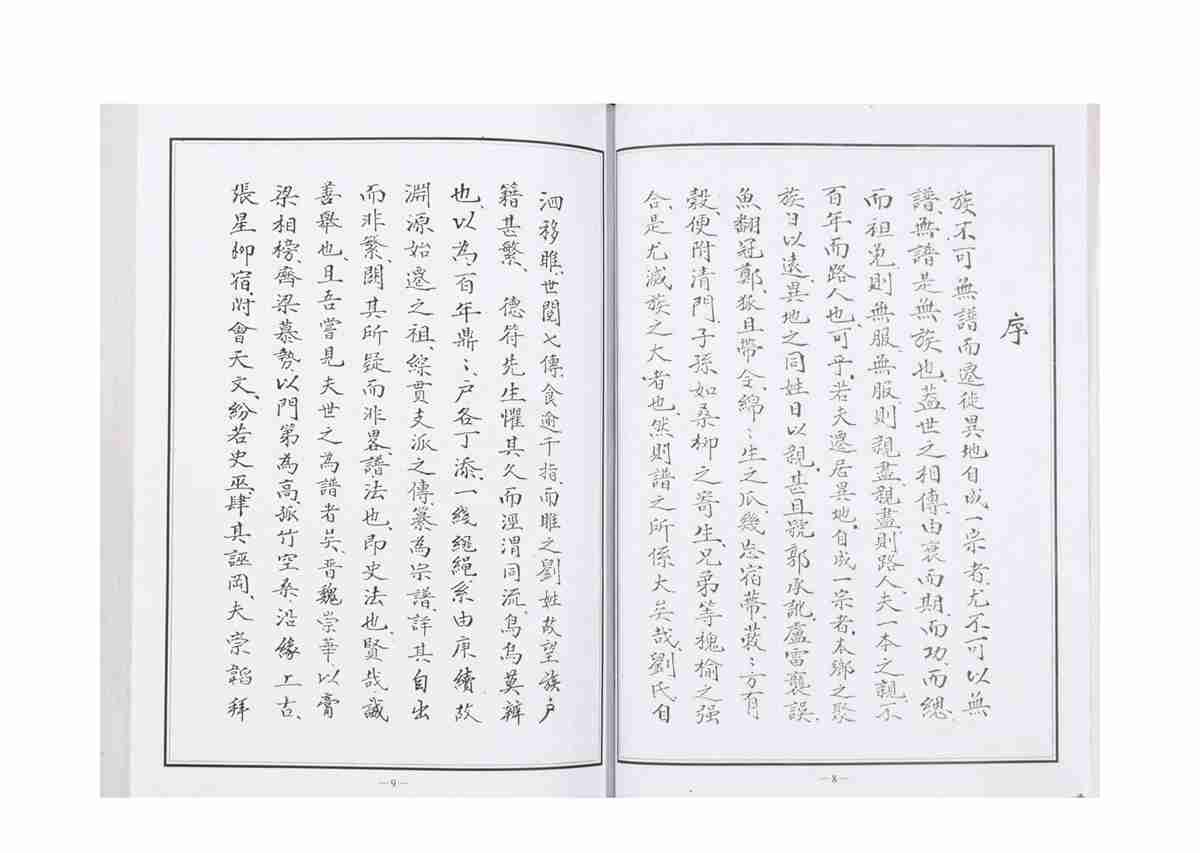 序
族、不可無譜而遷徙異地自成一宗者、尤不可以無
譜、無譜是無族也、蓋世之相傳由衰而期、而功、而緦、
而祖免、則無服、無服則親盡、親盡則路人、夫一本之親、不
百年而路人也、可乎、若夫遷居異地、自成一宗者、本鄉之聚
族日以遠、異地之同姓日以親、甚且號郭承訛、盧雷襲誤、
魚翻冠鄭、狐且帶令、綿〻生之瓜、幾忘宿蒂、蔌〻方有
穀、便附清門、子孫如桑柳之寄生、兄弟等槐榆之强
合、是尤滅族之大者也、然則譜之所係大矣哉、劉氏、自
—8—
泗移睢、世閱七傳、食逾千指、而睢之劉姓故望族、户
籍甚繁、　德符先生懼其久而涇渭同流、烏烏莫辨
也、以為百年鼎〻、户各丁添、一綫繩繩、系由庚續、故
淵源始遷之祖、綜貫支派之傳、纂為宗譜、詳其自出
而非繁、闕其所疑而非畧、譜法也、即史法也、賢哉誠
善舉也、且吾嘗見夫世之為譜者矣、晋魏崇華、以膏
梁相榜、齊梁慕勢、以門第為高、孤竹空桑、沿緣上古、
張星柳宿、附會天文、紛若史巫、肆其誣罔、夫崇韜拜
—9—